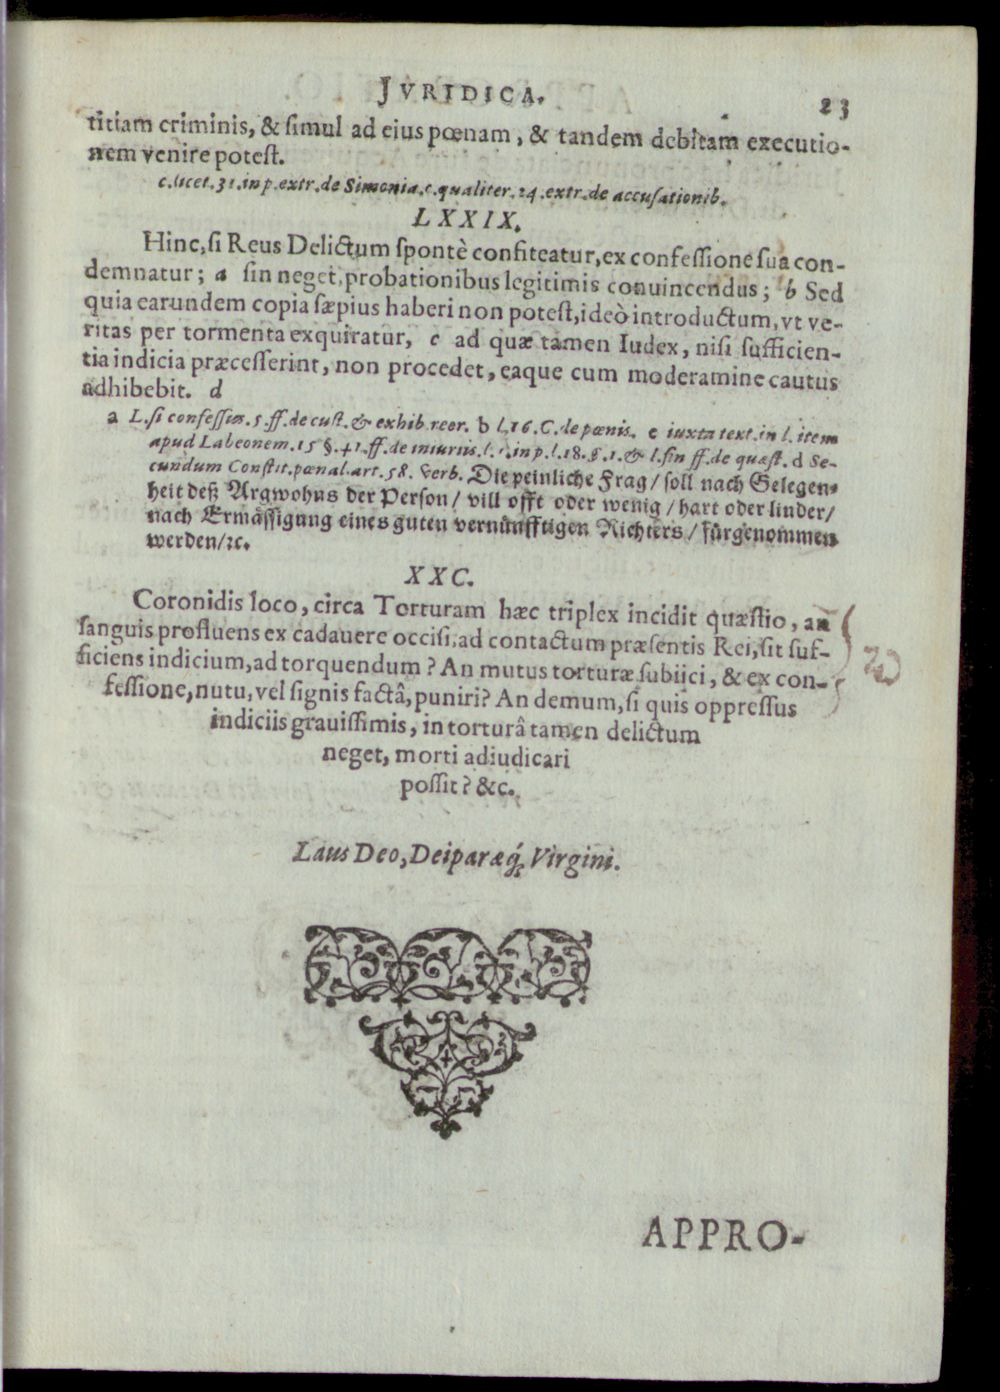 JVRIDICA. 23
titiam criminis, & simul ad eius pœnam, & tandem debitam executio-
nem venire potest.
c. licet. 31. in p. extr. de Simonia. c. qualiter. 24. extr. de accusationib.
LXXIX.
Hinc, si Reus Delictum spontè confiteatur, ex confessione sua con-
demnatur; a sin neget, probationibus legitimis conuincendus; b Sed
quia earundem copia sæpius haberi non potest, ideò introductum, vt ve-
ritas per tormenta exquiratur, c ad quæ tamen Iudex, nisi sufficien-
tia indicia præcesserint, non procedet, eaque cum moderamine cautus
adhibebit. d
a L. si confessus. 5. ff. de cust. & exhib. reor. b l. 16. C. de pœnis. c iuxta text. in l. item
apud Labeonem. 15 §. 41. ff. de iniuriis. l. 1. in p. l. 18. §. 1. & l. fin ff. de quæst. d Se-
cundum Constit. pœnal. art. 58. verb. Die peinliche Frag / soll nach Gelegen-
heit deß Argwohns der Person / vill offt oder wenig / hart oder linder /
nach Ermässigung eines guten vernünfftigen Richters / fürgenommen
werden / ꝛc.
XXC.
Coronidis loco, circa Torturam hæc triplex incidit quæstio, an
sanguis profluens ex cadauere occisi, ad contactum præsentis Rei, sit suf-
ficiens indicium, ad torquendum? An mutus torturæ subijci, & ex con-
fessione, nutu, vel signis factâ, puniri? An demum, si quis oppressus
indiciis grauissimis, in torturâ tamen delictum
neget, morti adiudicari
possit? &c.
Laus Deo, Deiparæq́; Virgini.
APPRO-